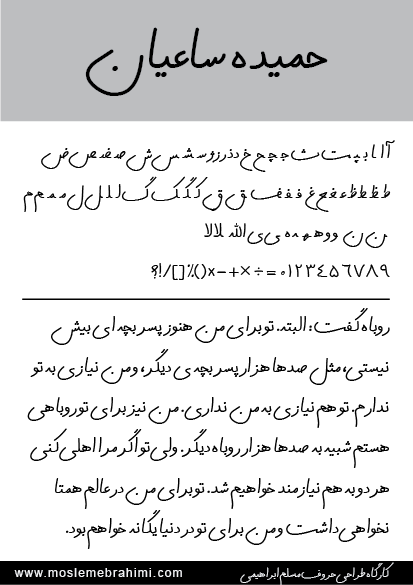 حمیده ساعیان
آ ا ا ب‍ پ‍ ت ث ج چ ح خ د ذ ر ز و س ش س ش ص‍ ض‍ ص ض
ط ظ ط ظ ع غ ع غ ف ف ق ق ک گ ک گ ل ل ل ل م م م م
ن ن و و ه ه ه ه ی ی الله لا لا
؟!/[]٪()x-+×÷=۰۱۲۳٤۵٦۷۸۹
روباه گفت: البته. تو برای من هنوز پسر بچه ای بیش
نیستی، مثل صدها هزار پسر بچه ی دیگر، و من نیازی به تو
ندارم. تو هم نیازی به من نداری. من نیز برای تو روباهی
هستم شبیه به صدها هزار روباه دیگر. ولی تو اگر مرا اهلی کنی
هر دو به هم نیازمند خواهیم شد. تو برای من در عالم همتا
نخواهی داشت و من برای تو در دنیا یگانه خواهم بود.
کارگاه طراحی حروف مسلم ابراهیمی
www.moslemebrahimi.com